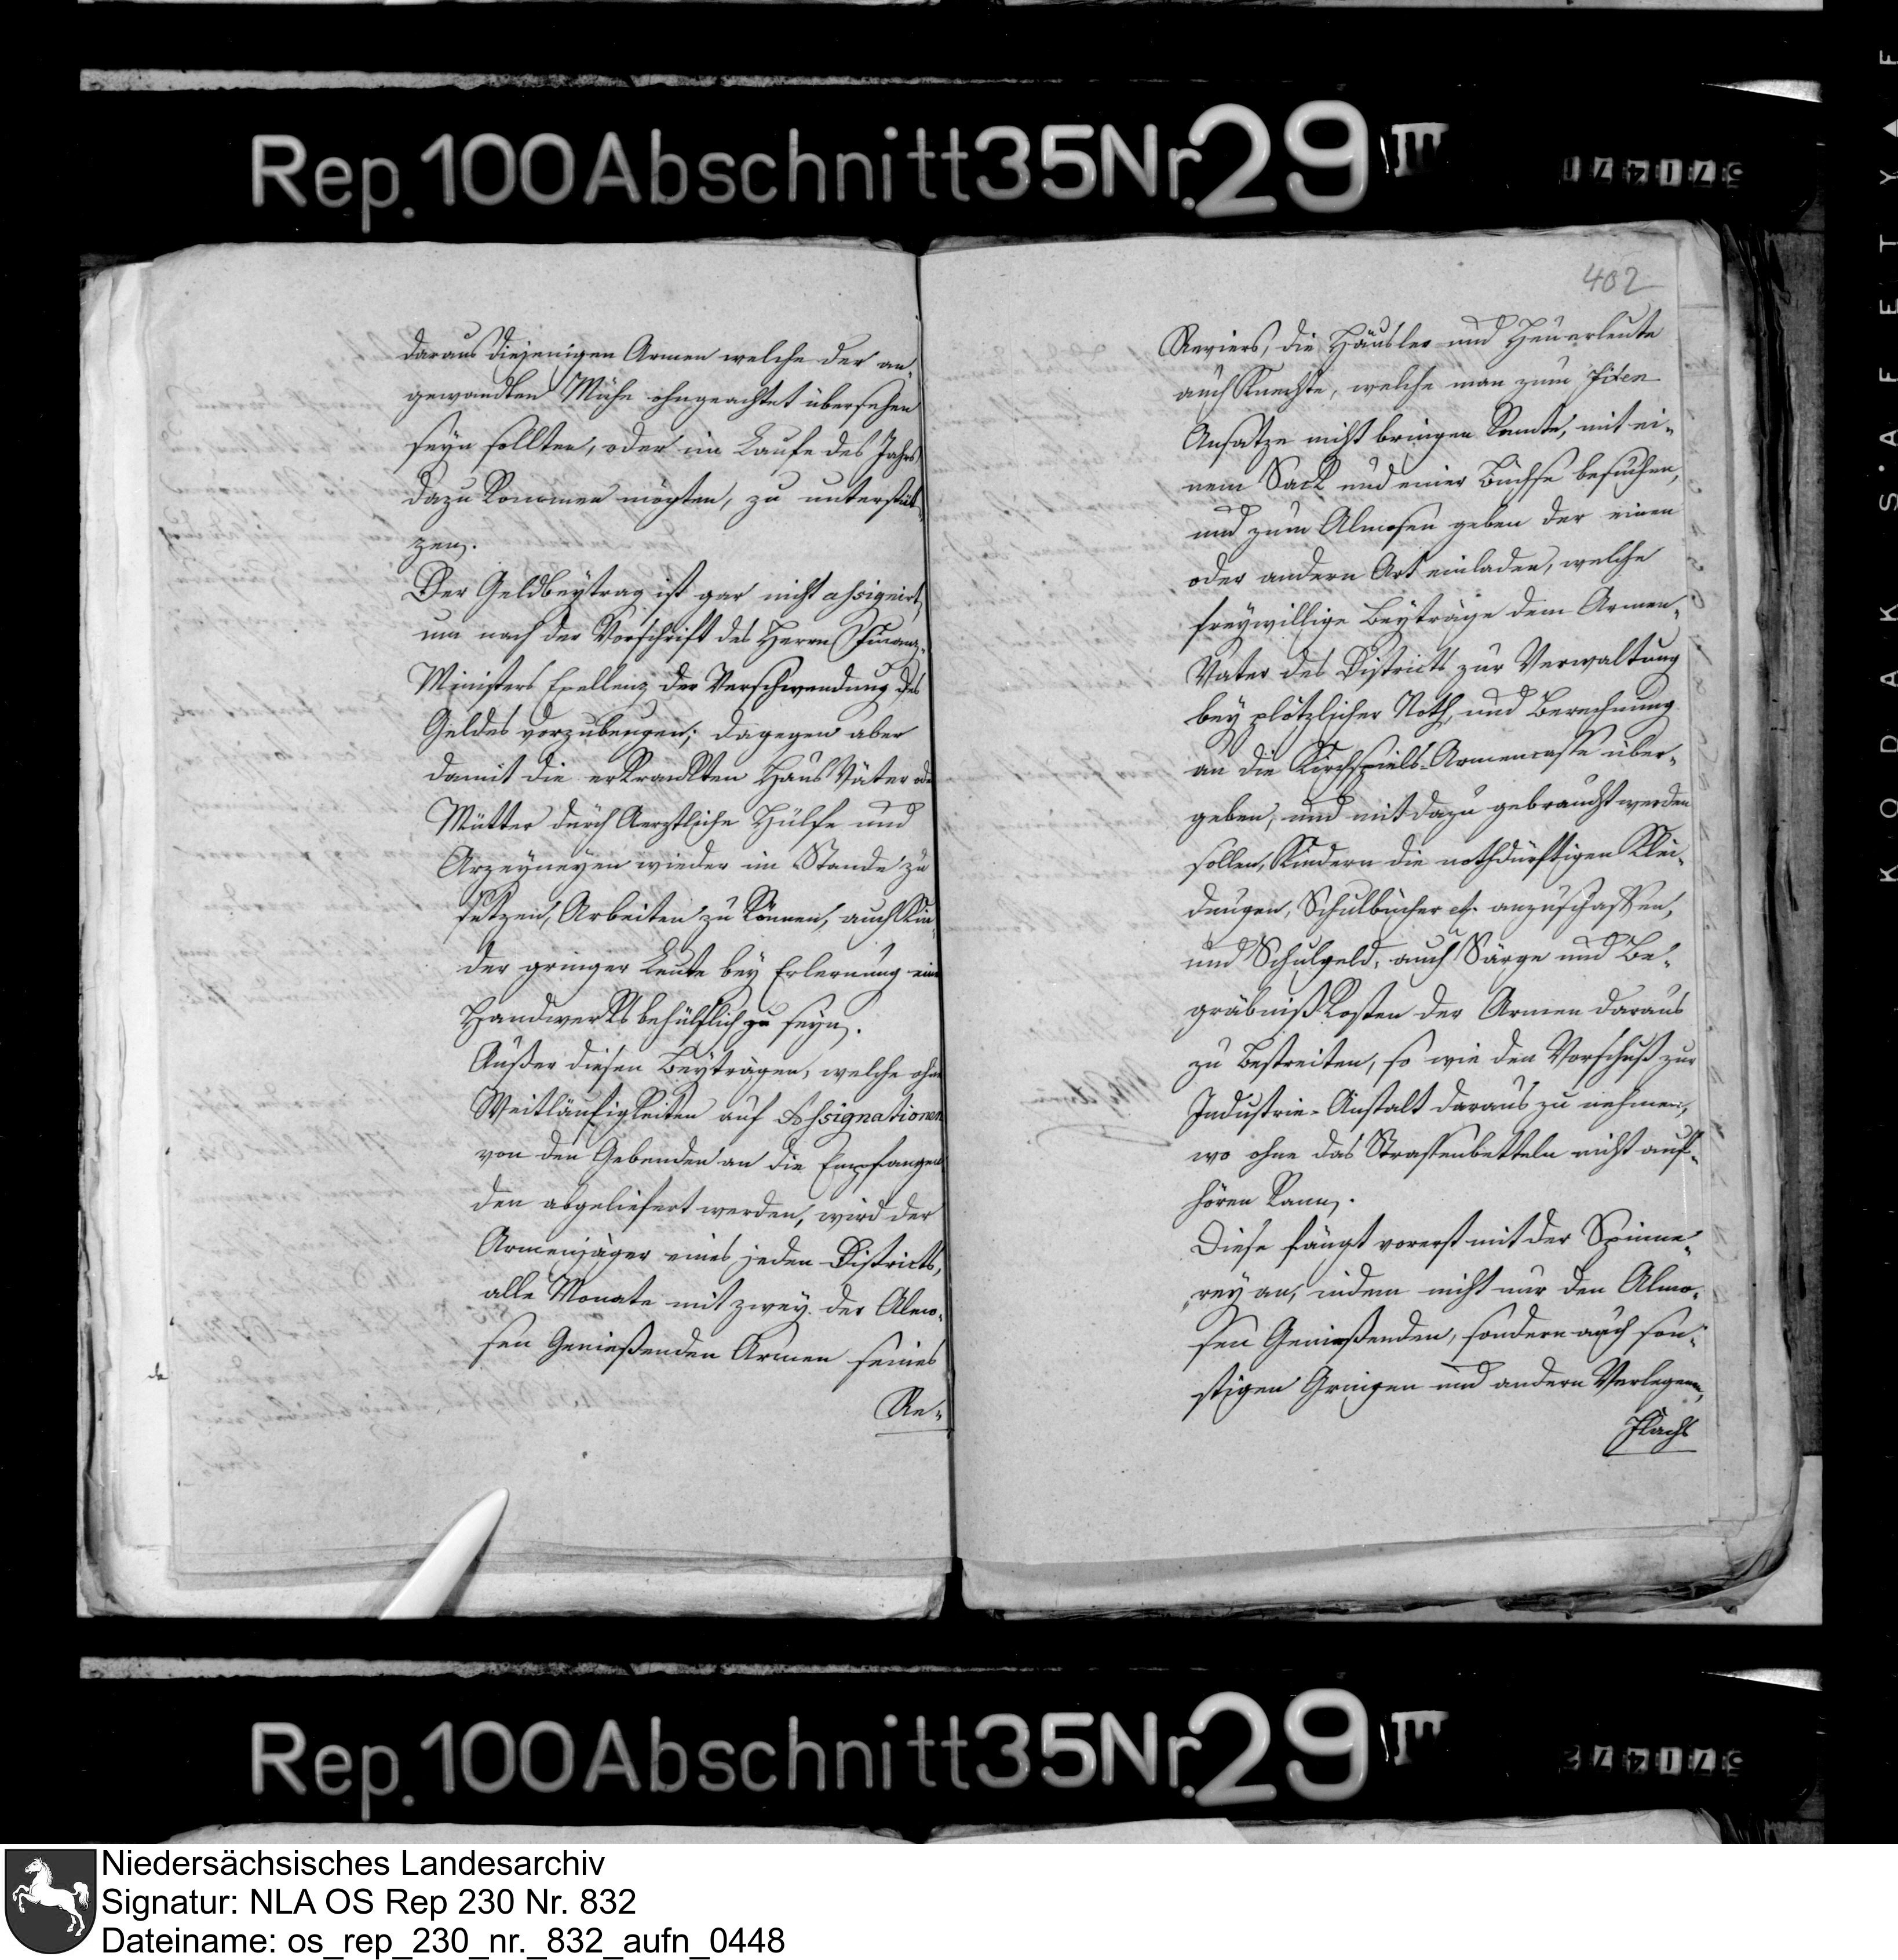 Rep. 100 Abschnitt 35 Nr. 29 III
daraus diejenigen Armen welche der an¬
gewandten Mühe ohngeachtet übersehen
seyn sollten, oder im Laufe des Jahrs
dazu kommen mögten, zu unterstüt¬
zen.
Der Geldbeytrag ist gar nicht assignirt,
um nach der Vorschrift des Herrn Finanz¬
Ministers Exellenz der Verschwendung des
Geldes vorzubeugen; dagegen aber
damit die erkrankten Haus Väter oder
Mütter durch Aerztliche Hülfe und
Arzeyneyen wieder im Stande zu
setzen, Arbeiten zu können, auch Kin¬
der gringer Leute bey Erlernung eines
Handwerks behülflich zu seyn.
Außer diesen Beyträgen, welche ohne
Weitläufigkeiten auf Assignationen
von den Gebenden an die Empfangen
den abgeliefert werden, wird der
Armenjäger eines jeden Districts,
alle Monate mit zwey der Almo¬
sen Genießenden Armen seines
Re¬
402
Reviers, die Häusler und Heuerleute
auch Knechte, welche man zum fixen
Ansatze nicht bringen konnte, mit ei¬
nem Sack und einer Büchse besuchen,
und zum Almosen geben der einen
oder andern Art einladen, welche
freywillige Beyträge dem Armen¬
Vater des Districts zur Verwaltung
bey plötzlicher Noth, und Berechnung
an die Kirchspiels-Armencasse über¬
geben, und mit dazu gebraucht werden
sollen, Kindern die nothdürftigen Klei¬
dungen, Schulbücher etc. anzuschaffen,
und Schulgeld, auch Särge und Be¬
gräbniß kosten der Armen daraus
zu bestreiten, so wie den Vorschuß zur
Industrie-Anstalt daraus zu nehmen,
wo ohne das Strassenbetteln nicht auf¬
hören kann.
Diese fängt vorerst mit der Spinne¬
rey an, indem nicht nur den Almo¬
sen Genießenden, sondern auch son¬
stigen Gringen und andern Verlegenen,
Flachs
Rep. 100 Abschnitt 35 Nr. 29 III
KODAK S'AFETY
Niedersächsisches Landesarchiv
Signatur: NLA OS Rep 230 Nr. 832
Dateiname: os_rep_230_nr._832_aufn_0448